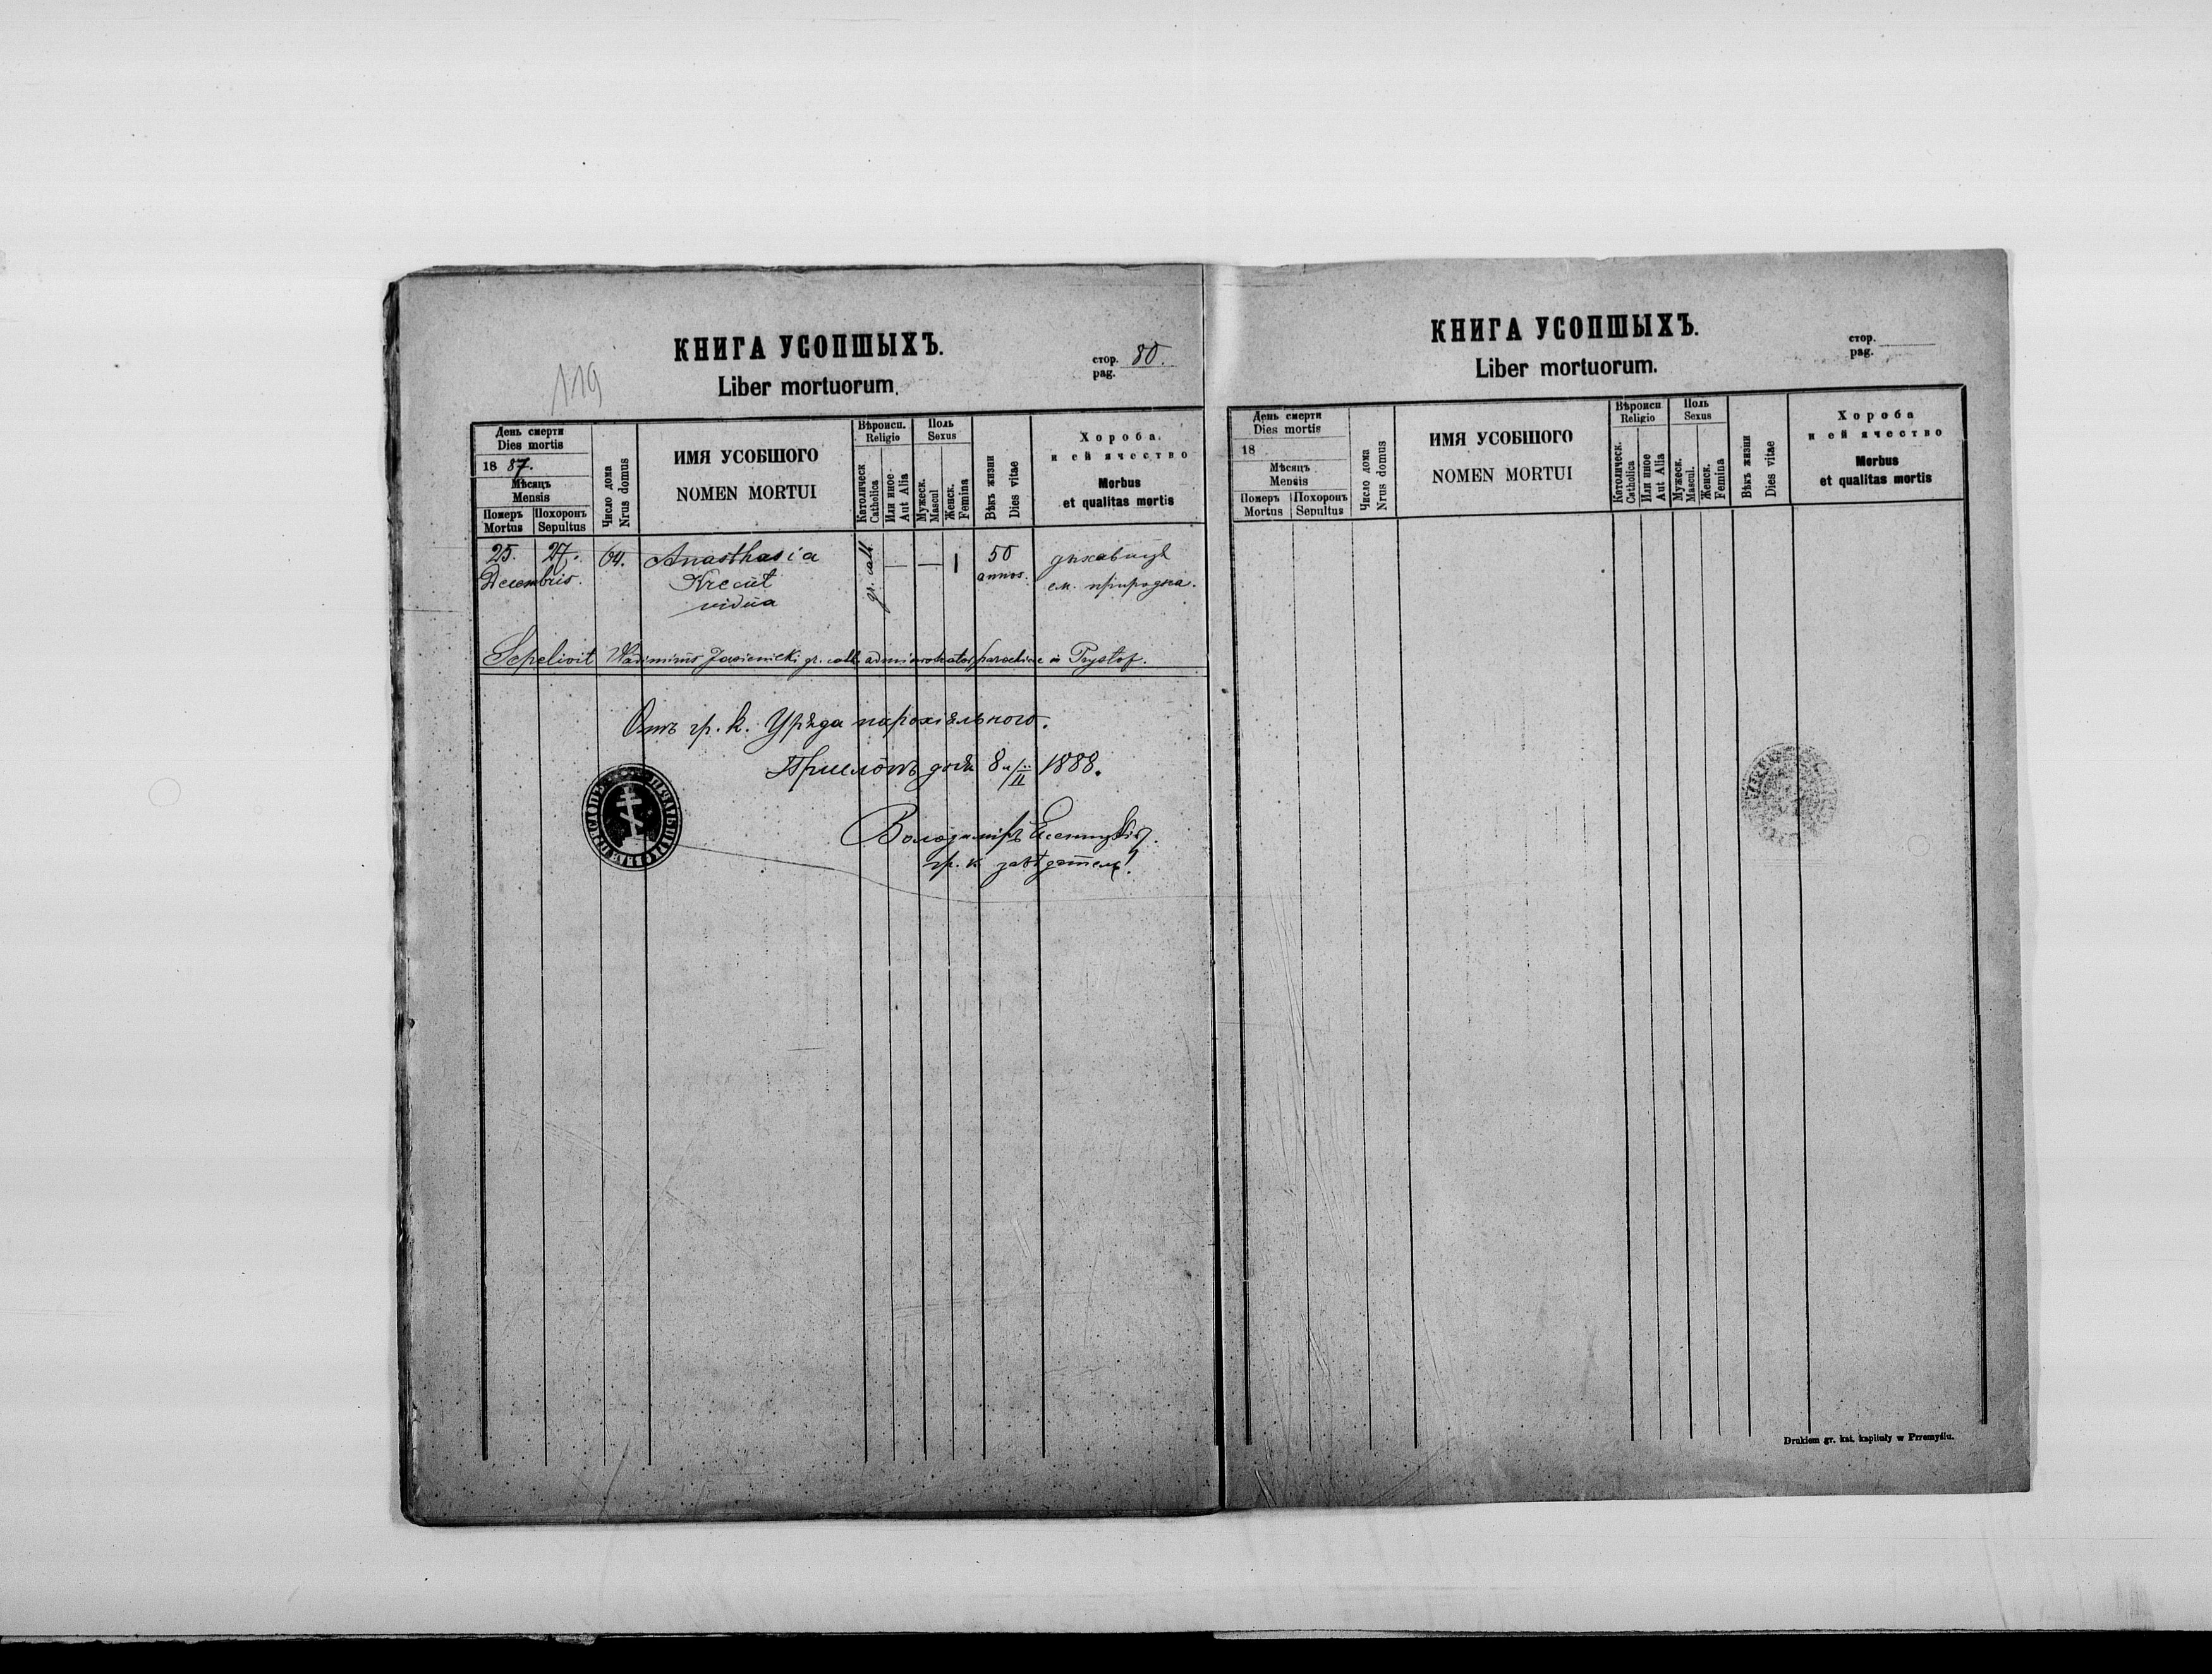 119
КНИГА УСОПШЫХЪ.
Liber mortuorum.
стор. 80.
pag.
День смерти
Dies mortis
18 87.
Мѣсяцъ
Mensis
Померъ
Mortus
Похоронъ
Sepultus
Число дома
Nrus domus
ИМЯ УСОБШОГО
NOMEN MORTUI
Вѣроисп.
Religio
Католическ
Catholica
Или иное
Aut Alia
Поль
Sexus
Мужеск.
Mascul
Женск.
Femina
Вѣкъ жизни
Dies vitae
Хороба
и ей ячество
Morbus
et qualitas mortis
25. 27. 64. Anasthasia gr. cath. — — 1 50
Decembris. Krecut annos.
vidua см. природна.
Sepelivit Wladimirus Jasienicki gr. cath. administrator parochiae in
Отъ гр. к. Уряда парохіяльного.
дня 8 II 1888.
Володимiръ
гр. к. завѣдатель
КНИГА УСОПШЫХЪ.
Liber mortuorum.
стор.
pag.
День смерти
Dies mortis
18
Мѣсяцъ
Mensis
Померъ
Mortus
Похоронъ
Sepultus
Число дома
Nrus domus
ИМЯ УСОБШОГО
NOMEN MORTUI
Вѣроисп
Religio
Католическ.
Catholica
Или иное
Aut Alia
Поль
Sexus
Мужеск.
Mascul.
Женск.
Femina
Вѣкъ жизни
Dies vitae
Хороба
и ей ячество
Morbus
et qualitas mortis
Drukiem gr. kat. kapituły w Przemyślu.